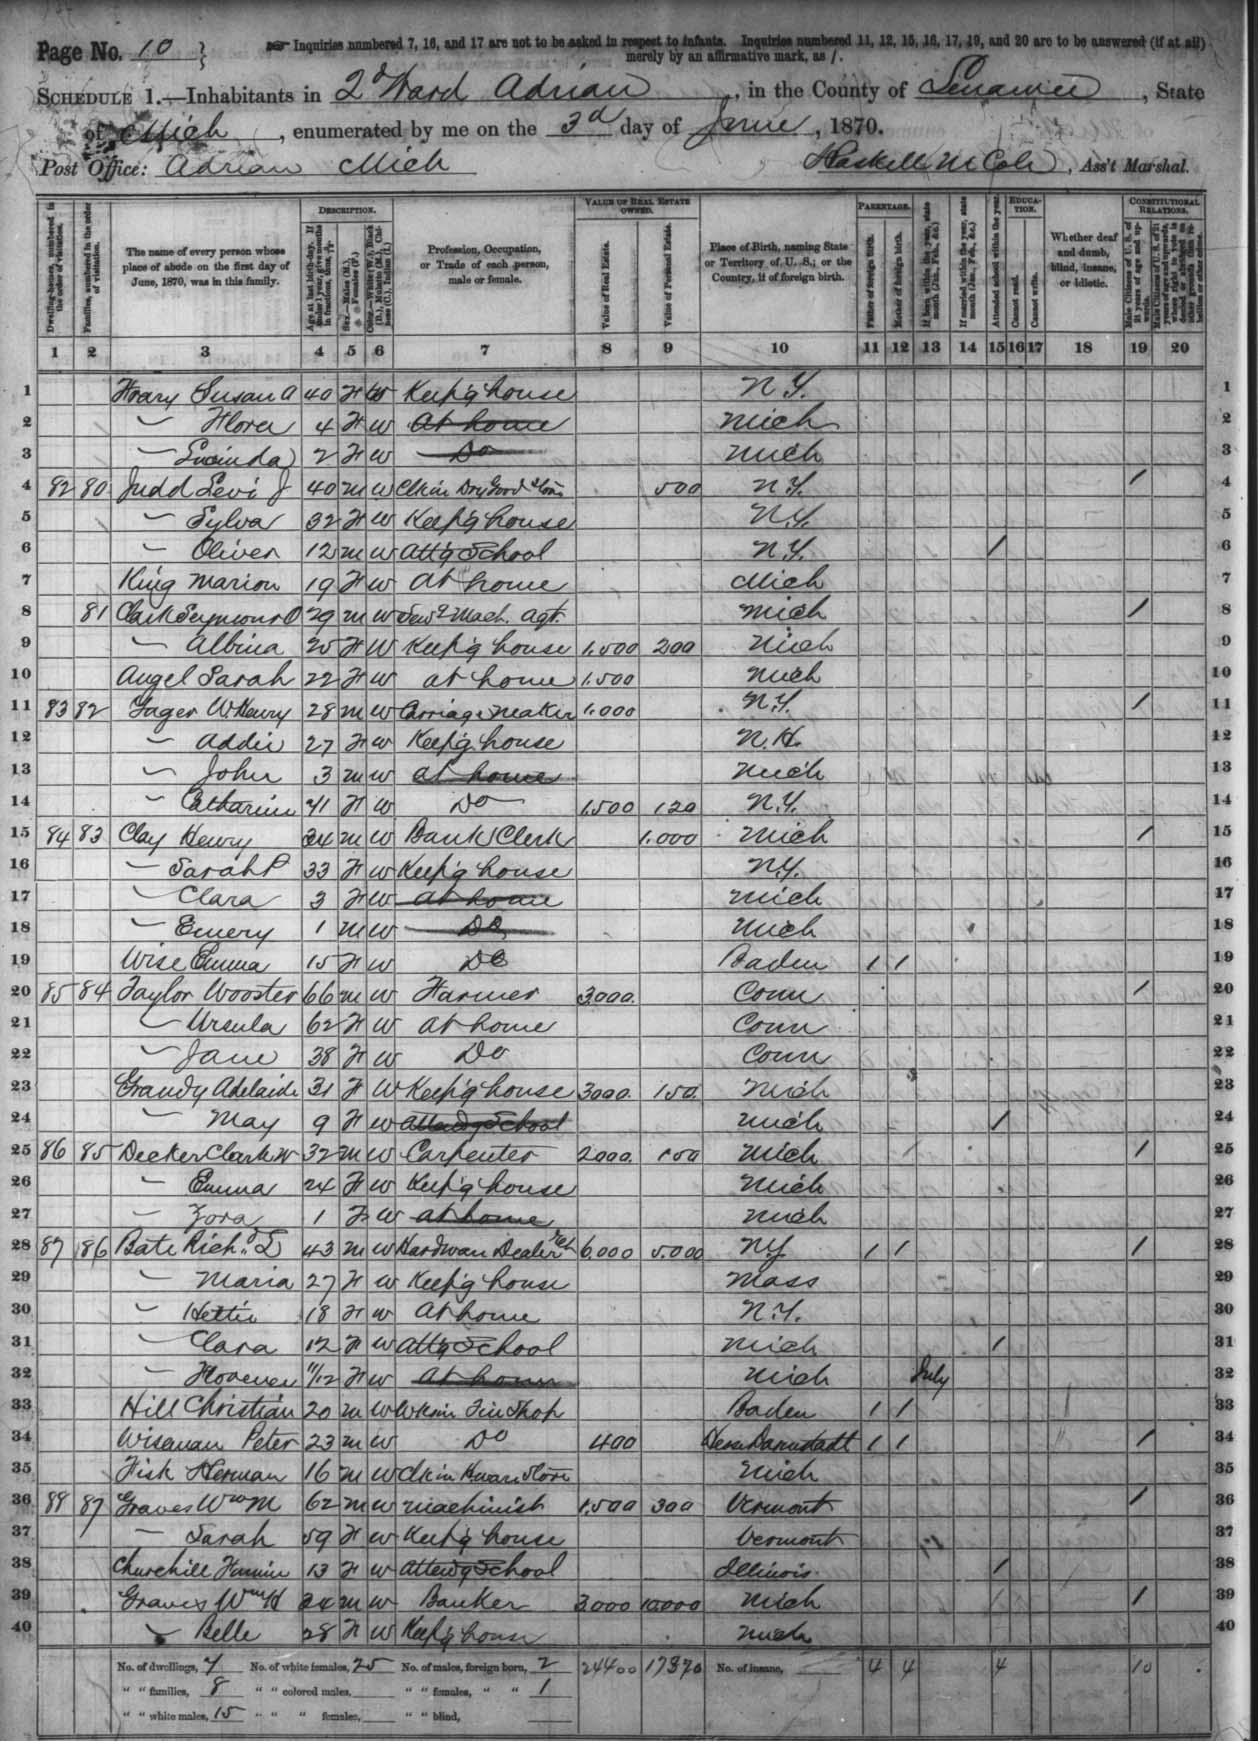 Page No. 10 } ☞ Inquiries numbered 7, 16, and 17 are not to be asked in respect to infants. Inquiries numbered 11, 12, 15, 16, 17, 19, and 20 are to be answered (if at all)
merely by an affirmative mark, as /.
SCHEDULE 1.—Inhabitants in 2d Ward Adrian, in the County of Lenawee, State
of Mich, enumerated by me on the 3d day of June, 1870.
Post Office: Adrian Mich Haskell M Cole, Ass't Marshal.
Dwelling-houses, numbered in the order of visitation.
Families, numbered in the order of visitation.
The name of every person whose place of abode on the first day of June, 1870, was in this family.
DESCRIPTION.
Age at last birth-day. If under 1 year, give months in fractions, thus,
Sex.—Males (M.), Females (F.)
Color.—White (W.), Black (B.), Mulatto (M.), Chinese (C.), Indian (I.)
Profession, Occupation, or Trade of each person, male or female.
VALUE OF REAL ESTATE OWNED.
Value of Real Estate.
Value of Personal Estate.
Place of Birth, naming State or Territory of U. S.; or the Country, if of foreign birth.
PARENTAGE.
Father of foreign birth.
Mother of foreign birth.
If born within the year, state month (Jan., Feb., &c.)
If married within the year, state month (Jan., Feb., &c.)
Attended school within the year.
EDUCATION.
Cannot read.
Cannot write.
Whether deaf and dumb, blind, insane, or idiotic.
CONSTITUTIONAL RELATIONS.
Male Citizens of U. S. of 21 years of age and upwards.
Male Citizens of U. S. of 21 years of age and upwards, whose right to vote is denied or abridged on other grounds than rebellion or other crime.
1 2 3 4 5 6 7 8 9 10 11 12 13 14 15 16 17 18 19 20
1 Susan A 40 F W Keep'g house N.Y. 1
2 — Flora 4 F W At home Mich 2
3 — Lucinda 2 F W Do Mich 3
4 82 80 Judd Levi J 40 M W Clk in Dry Good Store 500 N.Y. / 4
5 — Sylva 32 F W Keep'g house N.Y. 5
6 — Oliver 12 M W Att'g School N.Y. / 6
7 King Marion 19 F W At home Mich 7
8 81 Clark Seymour O 29 M W Sewg Mach. Agt. Mich / 8
9 — Albina 25 F W Keep'g house 1,500 200 Mich 9
10 Angel Sarah 22 F W at home 1,500 Mich 10
11 83 82 W Henry 28 M W Carriage Maker 1,000 N.Y. / 11
12 — Addie 27 F W Keep'g house N.H. 12
13 — John 3 M W at home Mich 13
14 — Catharine 41 F W Do 1,500 120 N.Y. 14
15 84 83 Clay Henry 34 M W Bank Clerk 1,000 Mich / 15
16 — Sarah P 33 F W Keep'g house N.Y. 16
17 — Clara 3 F W at home Mich 17
18 — Emery 1 M W Do Mich 18
19 Wise Emma 15 F W Do Baden / / 19
20 85 84 Taylor Wooster 66 M W Farmer 3,000 Conn / 20
21 — Ursula 62 F W at home Conn 21
22 — Jane 38 F W Do Conn 22
23 Grandy Adelaide 31 F W Keep'g house 3000 150 Mich 23
24 — May 9 F W Attendg School Mich / 24
25 86 85 Decker Clark W 32 M W Carpenter 2000 150 Mich / 25
26 — Emma 24 F W Keep'g house Mich 26
27 — Zora 1 F W at home Mich 27
28 87 86 Bate Richd L 43 M W Hardware Dealer Ret 6,000 5,000 N.Y. / / / 28
29 — Maria 27 F W Keep'g house Mass 29
30 — Hettie 18 F W At home N.Y. 30
31 — Clara 12 F W Att'g School Mich / 31
32 — 11/12 F W At home Mich July 32
33 Hill Christian 20 M W Wks in Tin Shop Baden / / 33
34 Wiseman Peter 23 M W Do 400 Hesse Darmstadt / / / 34
35 Fisk Herman 16 M W Clk in H.ware Store Mich 35
36 88 87 Graves Wm M 62 M W Machinist 1,500 300 Vermont / 36
37 — Sarah 59 F W Keep'g house Vermont 37
38 Churchill Fannie 13 F W Attend'g School Illinois / 38
39 Graves Wm H 34 M W Banker 3,000 10,000 Mich / 39
40 — Belle 28 F W Keep'g house Mich 40
No. of dwellings, 7 No. of white females, 25 No. of males, foreign born, 2 24400 17370 No. of insane, 4 4 4 10
" " families, 8 " " colored males, " " females, " " 1
" " white males, 15 " " " females, " " blind,